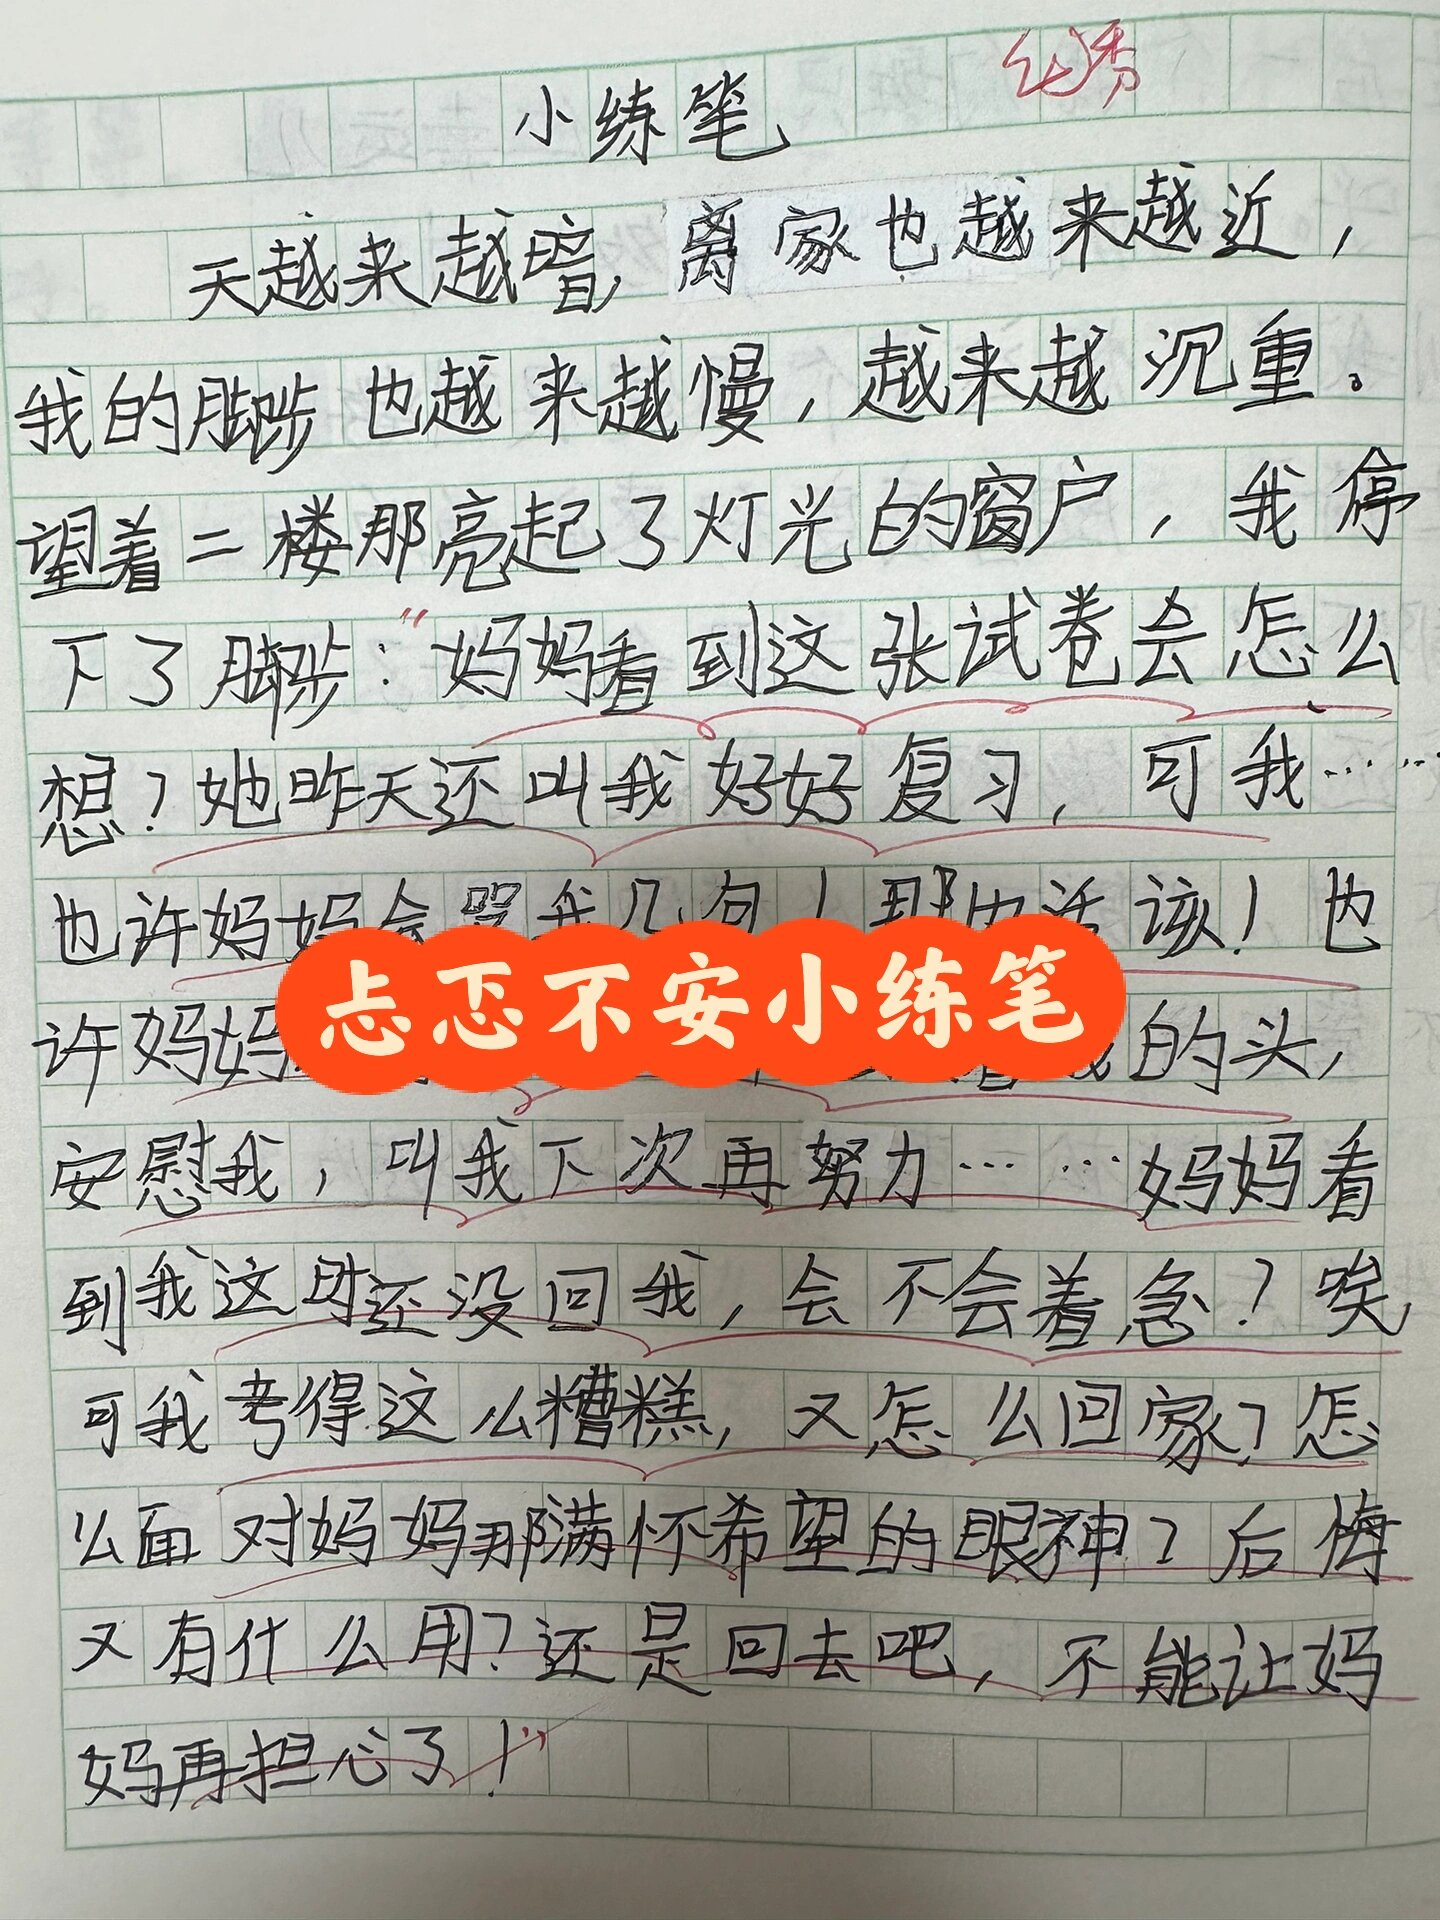 优秀
小练笔
天越来越暗,离家也越来越近,
我的脚步也越来越慢,越来越沉重。
望着二楼那亮起了灯光的窗户,我停
下了脚步:“妈妈看到这张试卷会怎么
想?她昨天还叫我好好复习,可我……
也许妈妈会骂我几句!那也活该!也
忐忑不安小练笔
许妈妈 我的头,
安慰我,叫我下次再努力……妈妈看
到我这时还没回我,会不会着急?唉,
可我考得这么糟糕,又怎么回家?怎
么面对妈妈那满怀希望的眼神?后悔
又有什么用?还是回去吧,不能让妈
妈再担心了!”